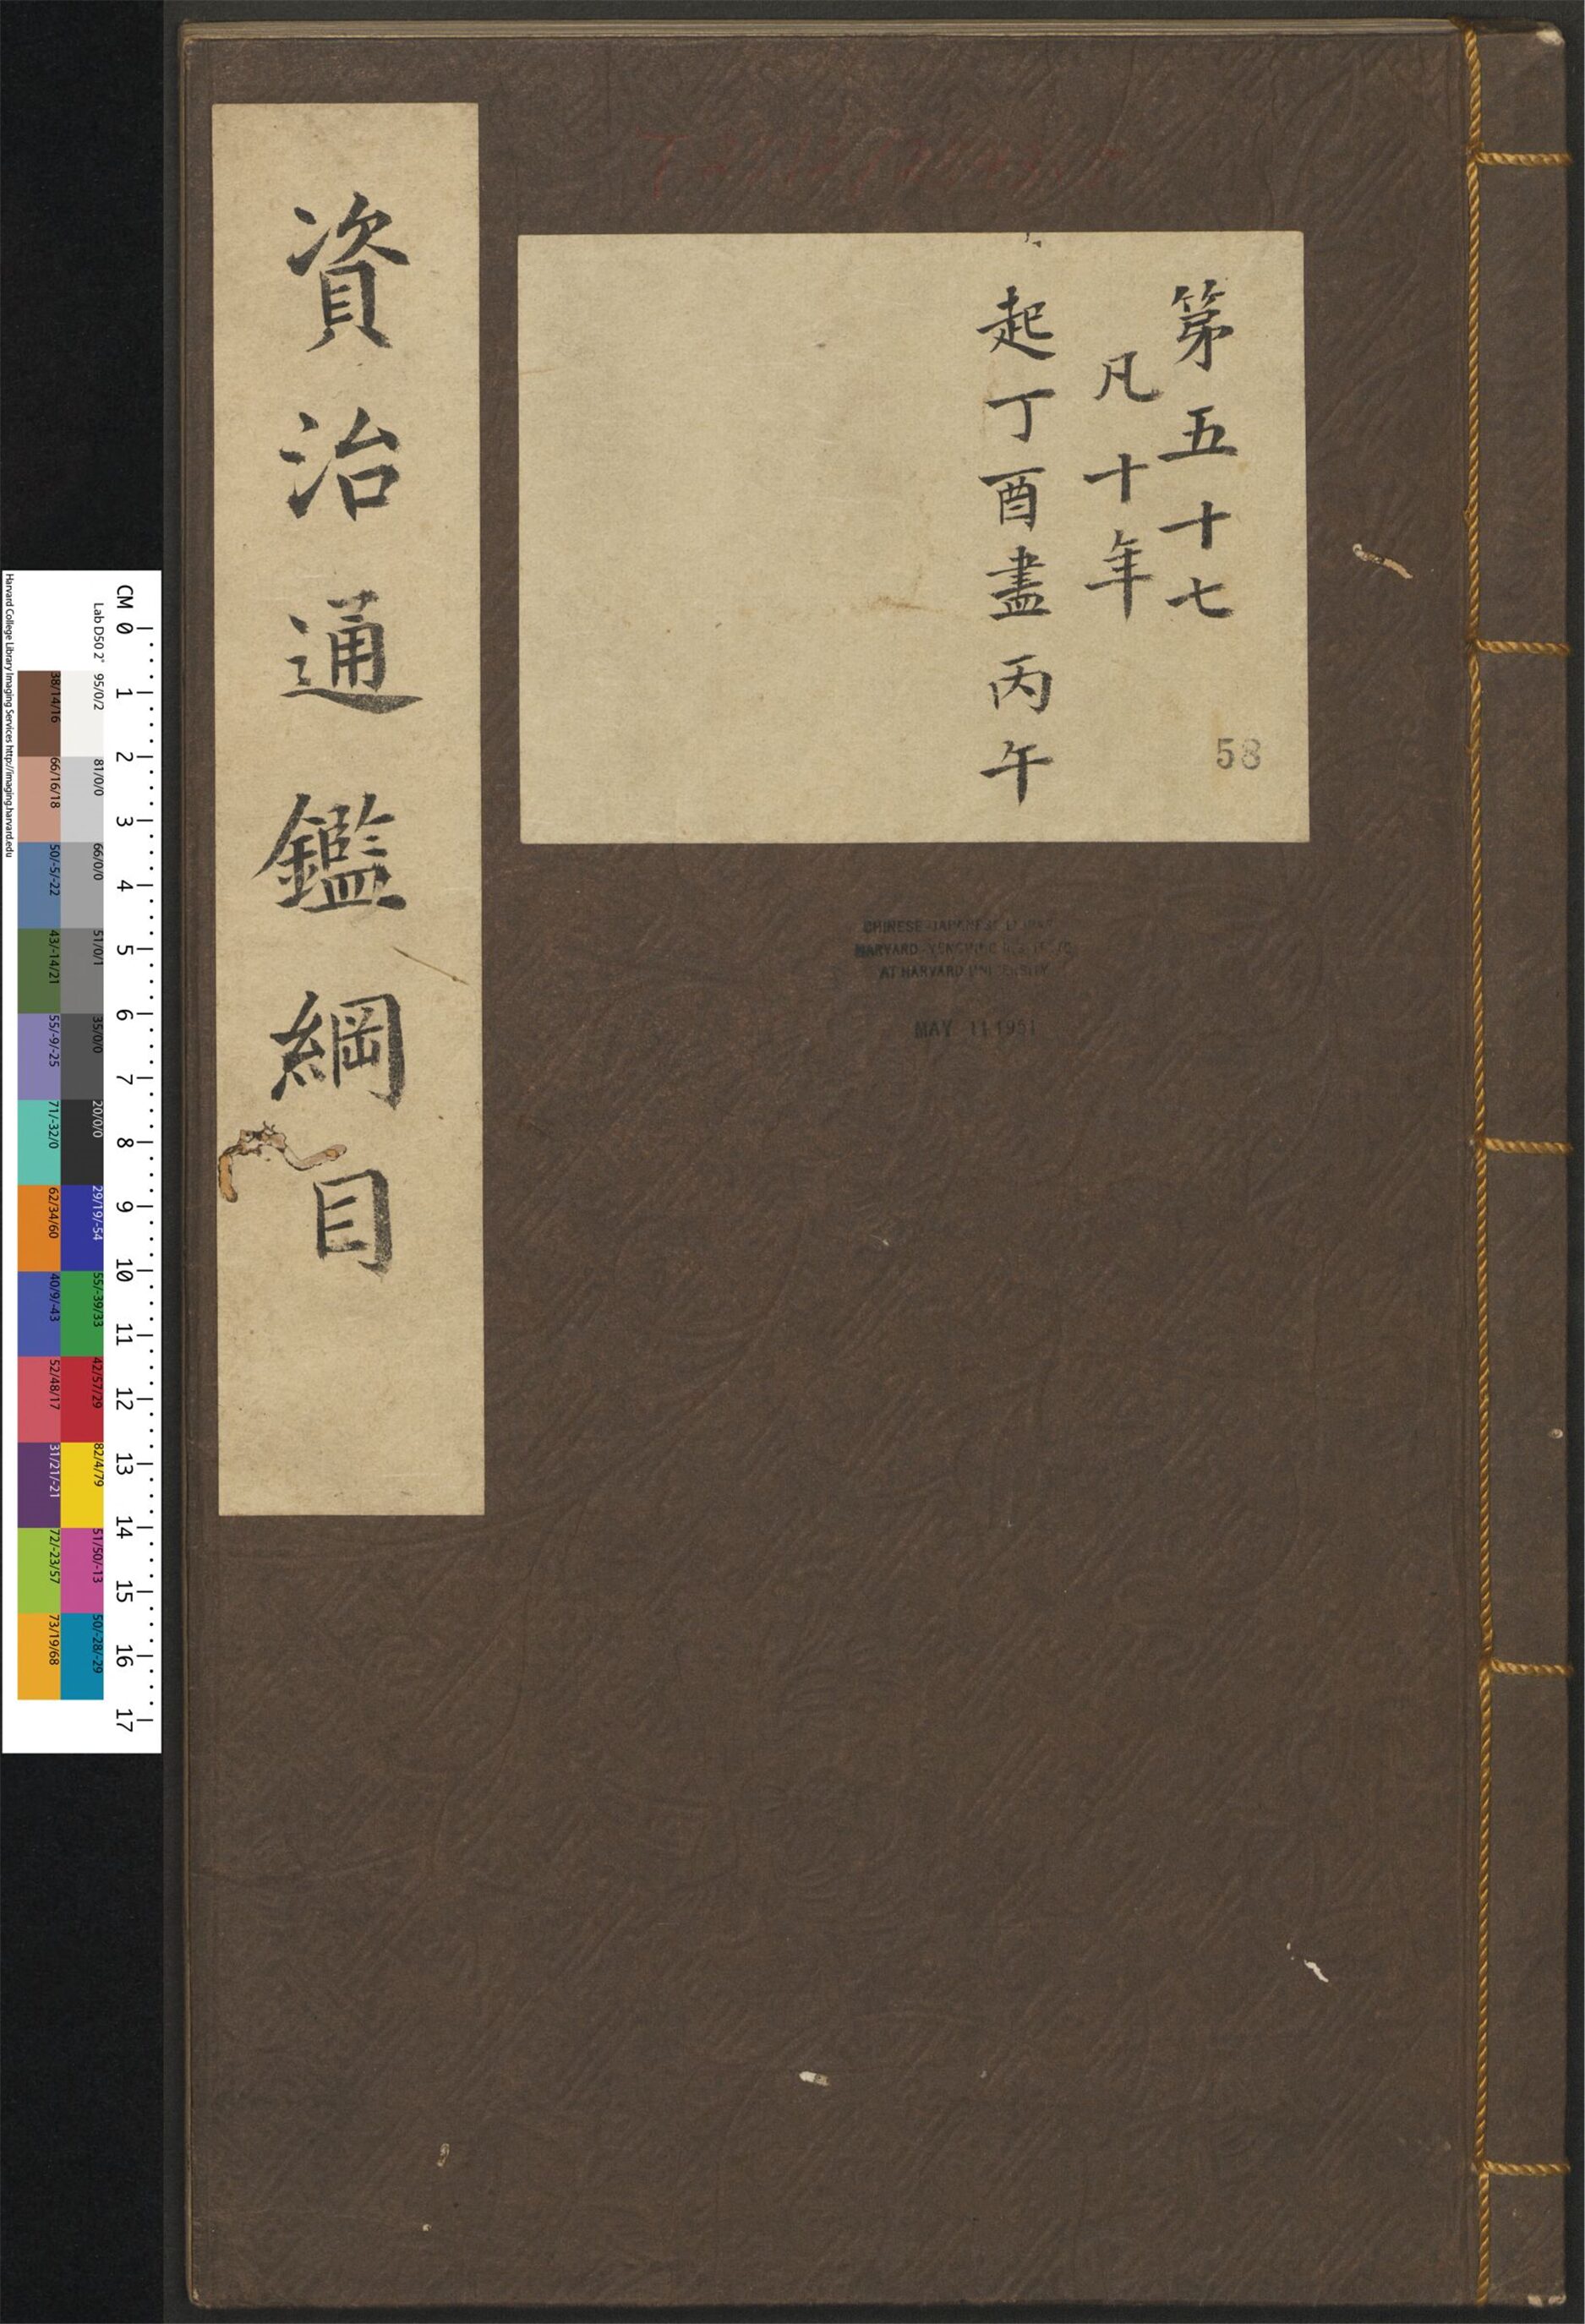 第五十七
凡十年
起丁酉盡丙午
58
資治通鑑綱目
CHINESE-JAPANESE
HARVARD-YENCHING
AT HARVARD UNIVERSITY
MAY 11 1951
CM 0 1 2 3 4 5 6 7 8 9 10 11 12 13 14 15 16 17
Lab D50 2° 95/0/2 81/0/0 66/0/0 51/0/1 35/0/0 20/0/0 29/19/-54 55/-39/33 42/57/29 82/4/79 51/50/-13 50/-28/-29
38/14/16 66/16/18 50/-5/-22 43/-14/21 55/-9/-25 71/-32/0 62/34/60 40/9/-43 52/48/17 31/21/-21 72/-23/57 73/19/68
Harvard College Library Imaging Services http://imaging.harvard.edu